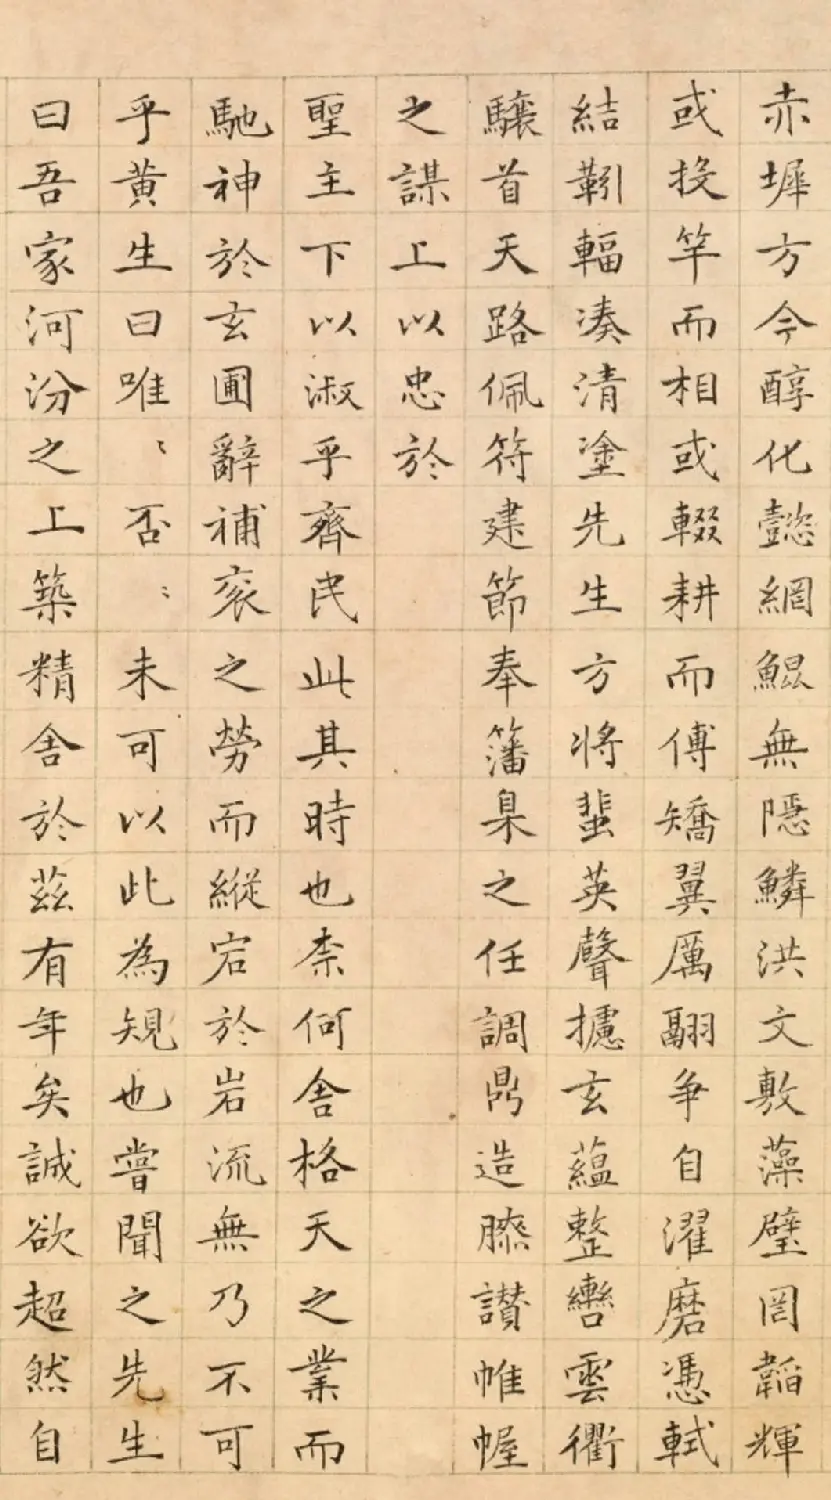 赤墀方今醇化懿網鯤無隱鱗洪文敷藻璧罔韜輝
或投竿而相或輟耕而傅矯翼厲翮爭自濯磨憑軾
結靷輻湊清塗先生方將蜚英聲攄玄蘊整轡雲衢
驤首天路佩符建節奉籓臬之任調鼎造膝讃帷幄
之謀上以忠於
聖主下以淑乎齊民此其時也柰何舍格天之業而
馳神於玄圃辭補衮之勞而縱宕於岩流無乃不可
乎黃生曰唯〻否〻未可以此為規也嘗聞之先生
曰吾家河汾之上築精舍於茲有年矣誠欲超然自